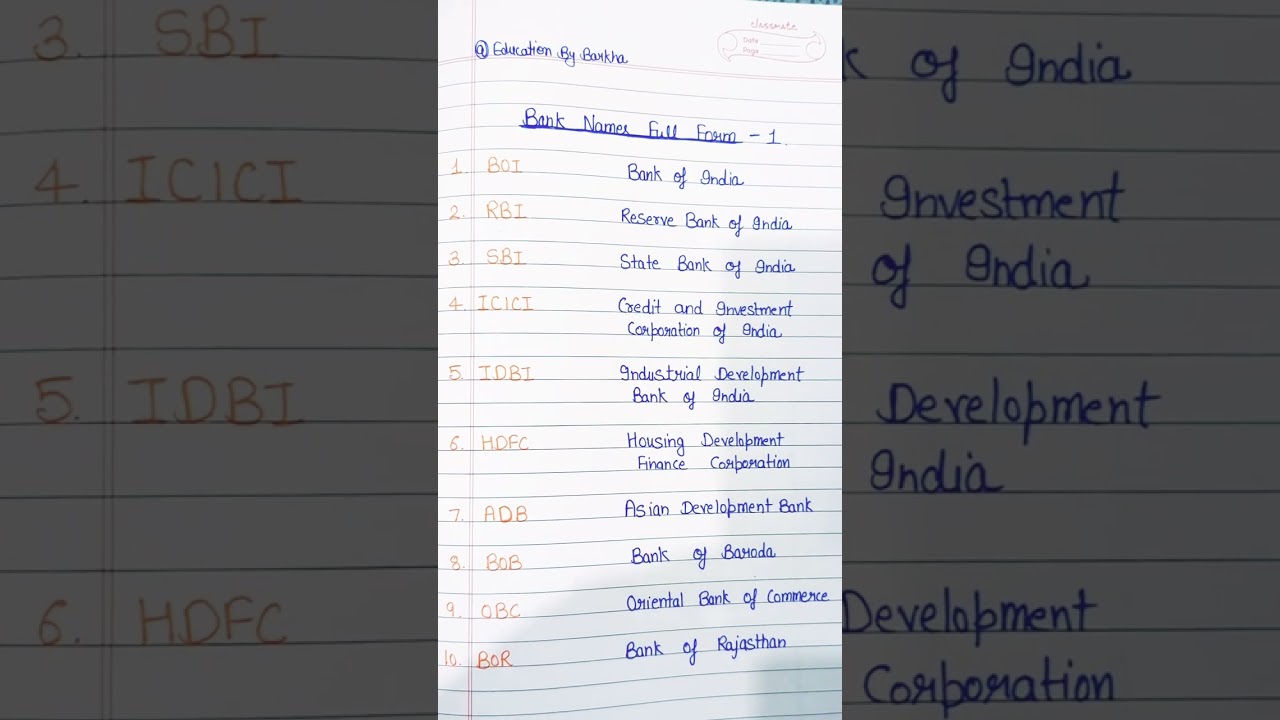 classmate
Date
Page
@ Education By Barkha
Bank Names Full Form - 1.
1. BOI Bank of India
2. RBI Reserve Bank of India
3. SBI State Bank of India
4. ICICI Credit and Investment
Corporation of India
5. IDBI Industrial Development
Bank of India
6. HDFC Housing Development
Finance Corporation
7. ADB Asian Development Bank
8. BOB Bank of Baroda
9. OBC Oriental Bank of Commerce
10. BOR Bank of Rajasthan
3. SBI
4. ICICI
5. IDBI
6. HDFC
k of India
Investment
of India
Development
India
Development
Corporation